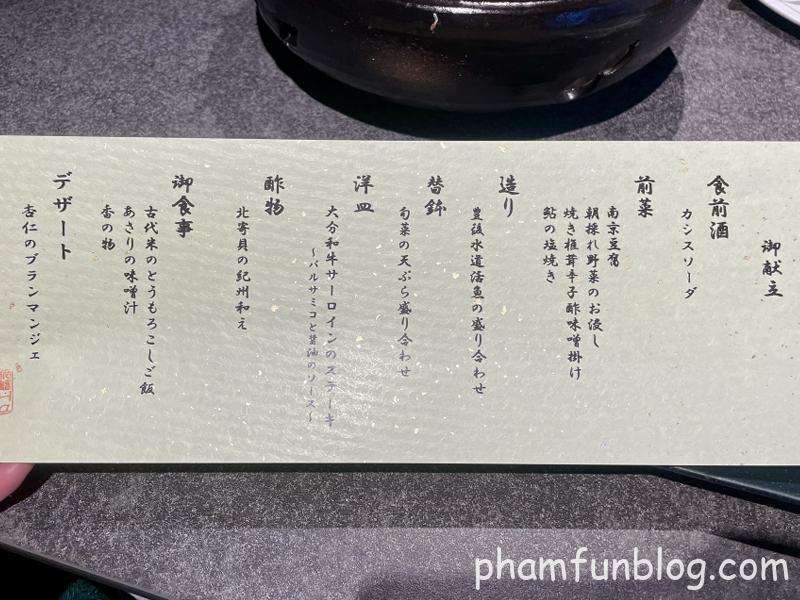 御献立
食前酒
カシスソーダ
前菜
南京豆腐
朝採れ野菜のお浸し
焼き椎茸辛子酢味噌掛け
鮎の塩焼き
造り
豊後水道活魚の盛り合わせ
替鉢
旬菜の天ぷら盛り合わせ
洋皿
大分和牛サーロインのステーキ
～バルサミコと醤油のソース～
酢物
北寄貝の紀州和え
御食事
古代米のとうもろこしご飯
あさりの味噌汁
香の物
デザート
杏仁のブランマンジェ
phamfunblog.com